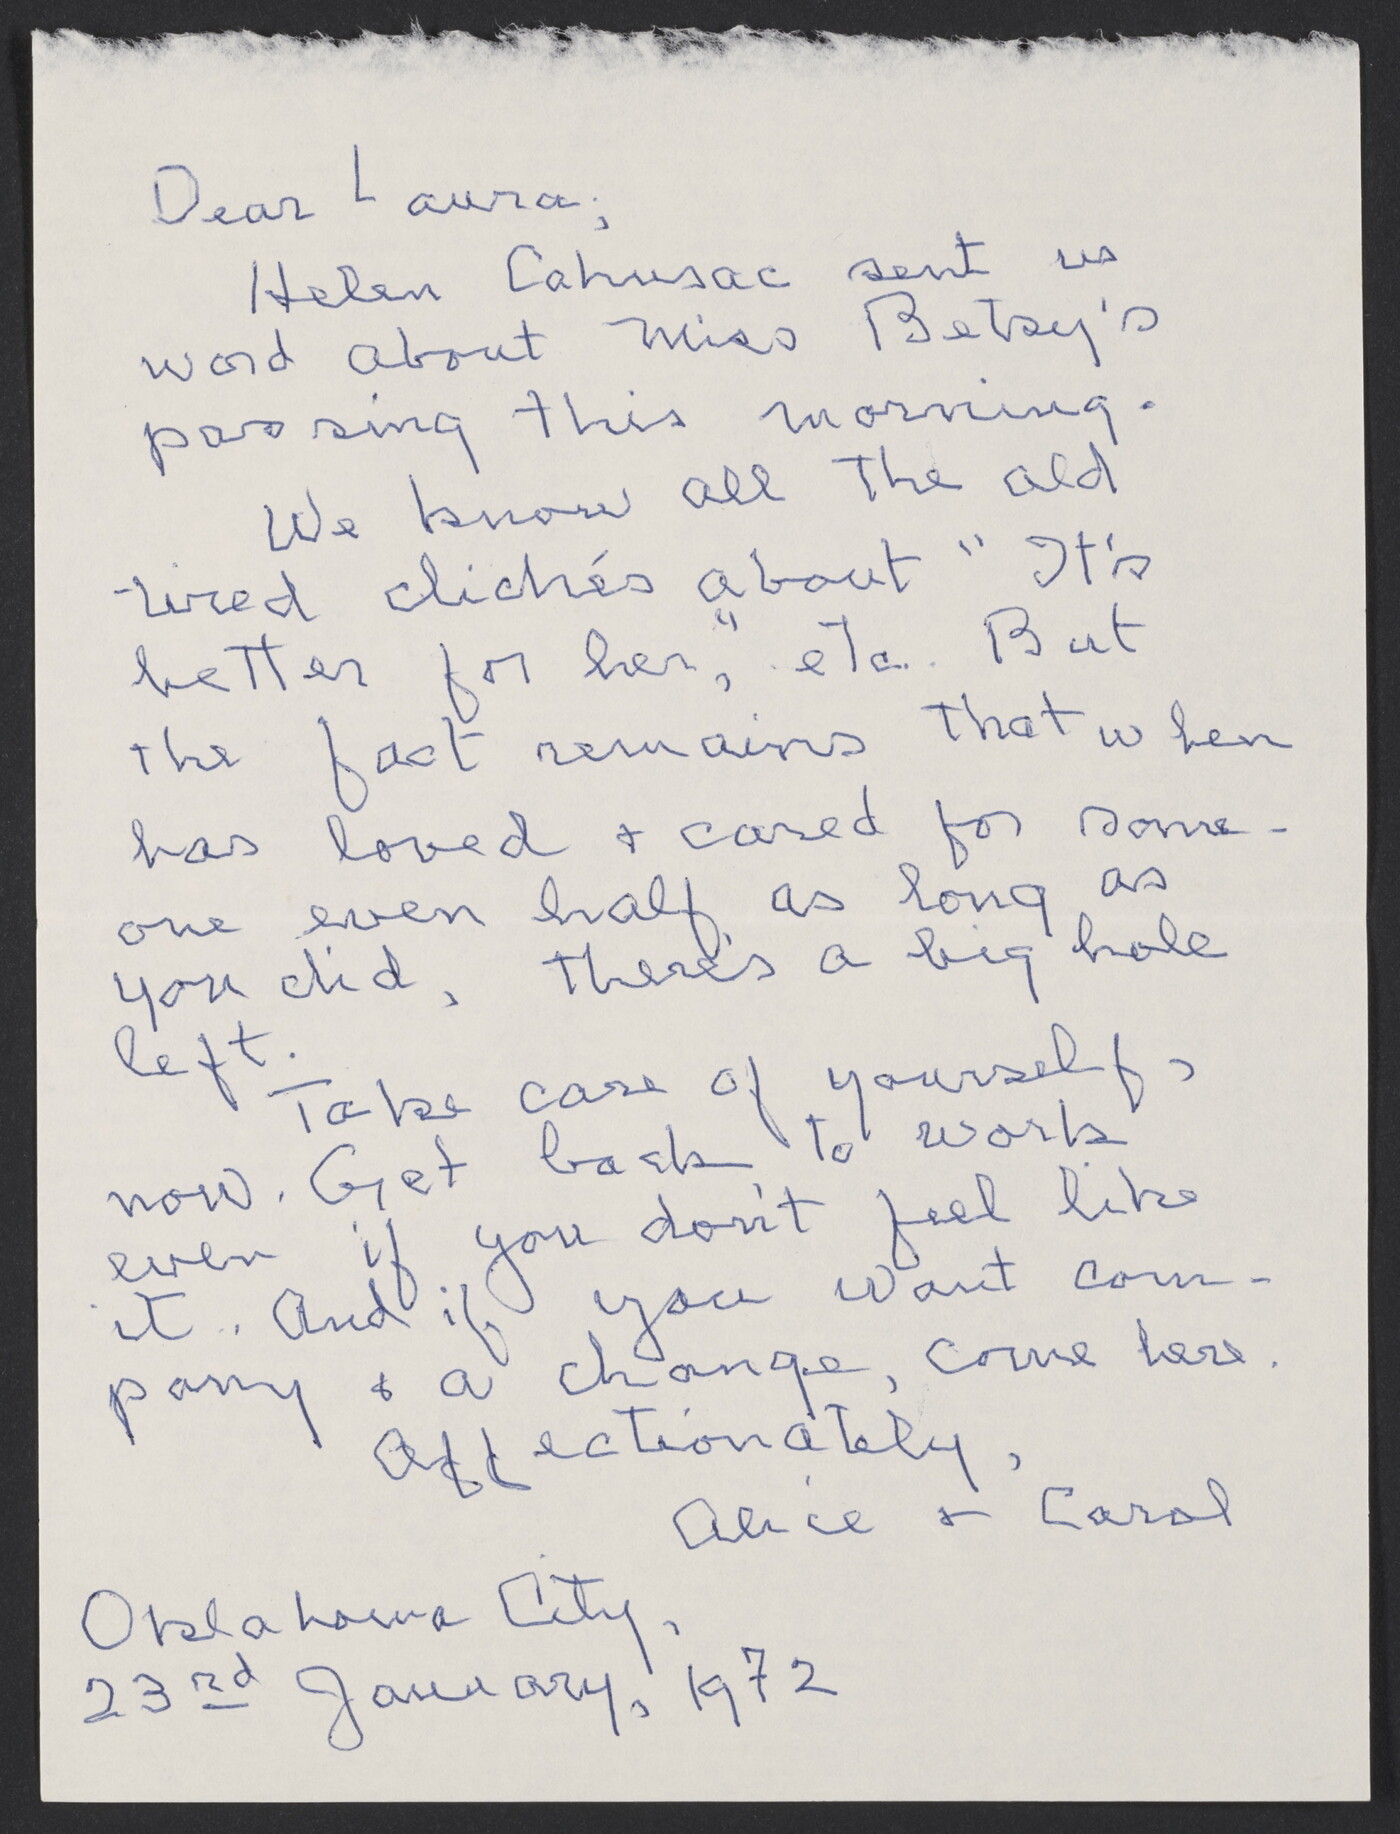 Dear Laura;
Helen Cahusac sent us
word about Miss Betsy's
passing this morning.
We know all the old
tired clichés about "It's
better for her," etc. But
the fact remains that when
has loved & cared for some-
one even half as long as
you did, there's a big hole
left.
Take care of yourself,
now. Get back to work
even if you don't feel like
it. And if you want com-
pany & a change, come here.
Affectionately,
Alice & Carol
Oklahoma City,
23rd January, 1972